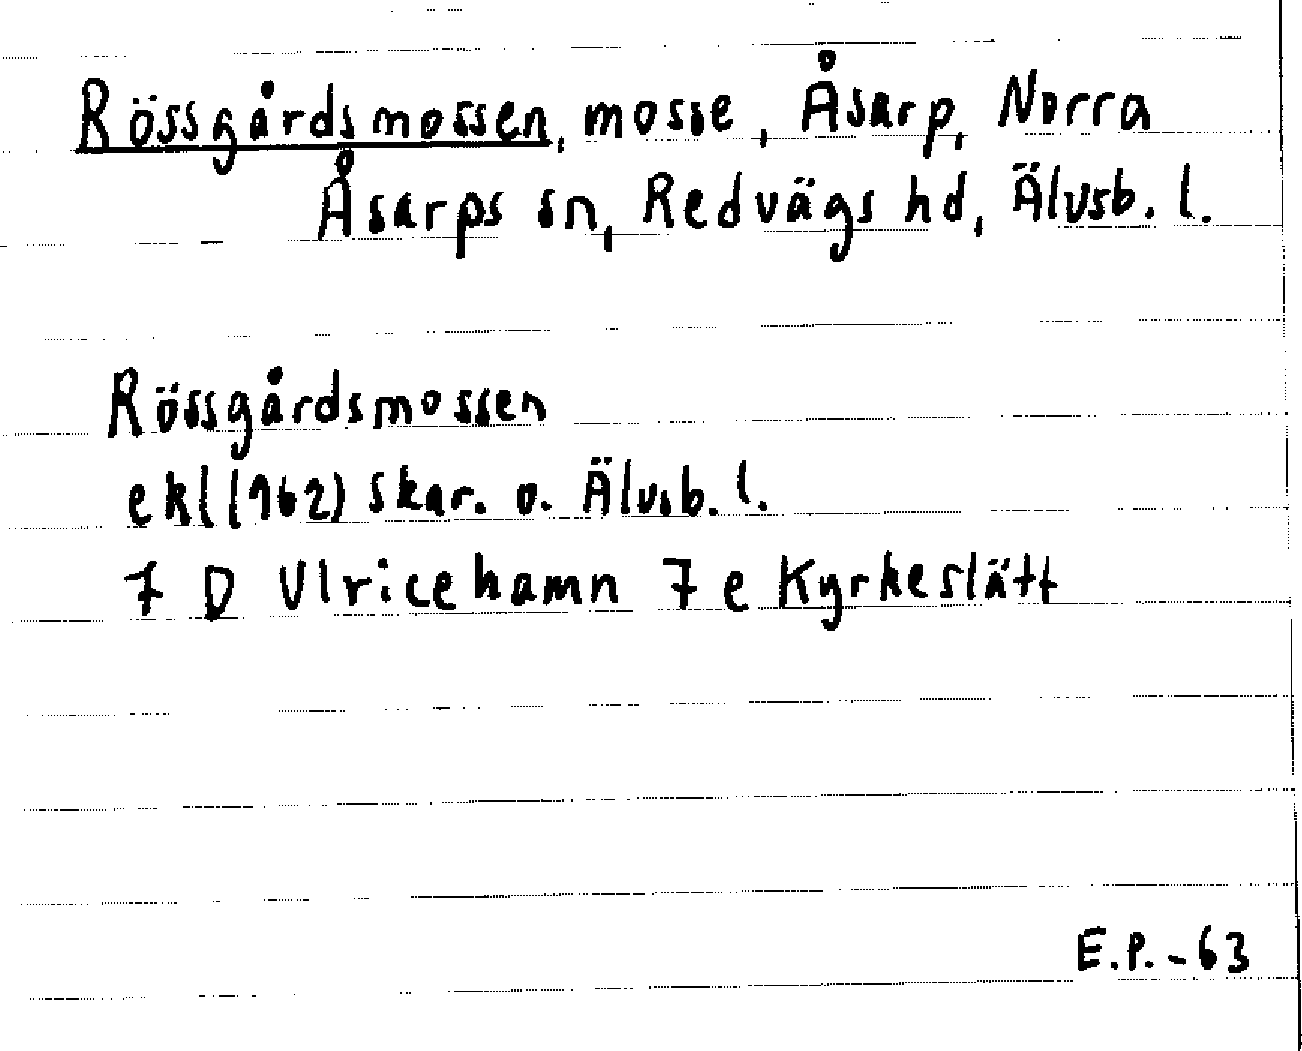 Rössgårdsmossen, mosse, Åsarp, Norra
Åsarps sn, Redvägs hd, Älvsb. l.
Rössgårdsmossen
ekl (1962) Skar. o. Älvsb. l.
7 D Ulricehamn 7 e Kyrkeslätt
E.P.-63